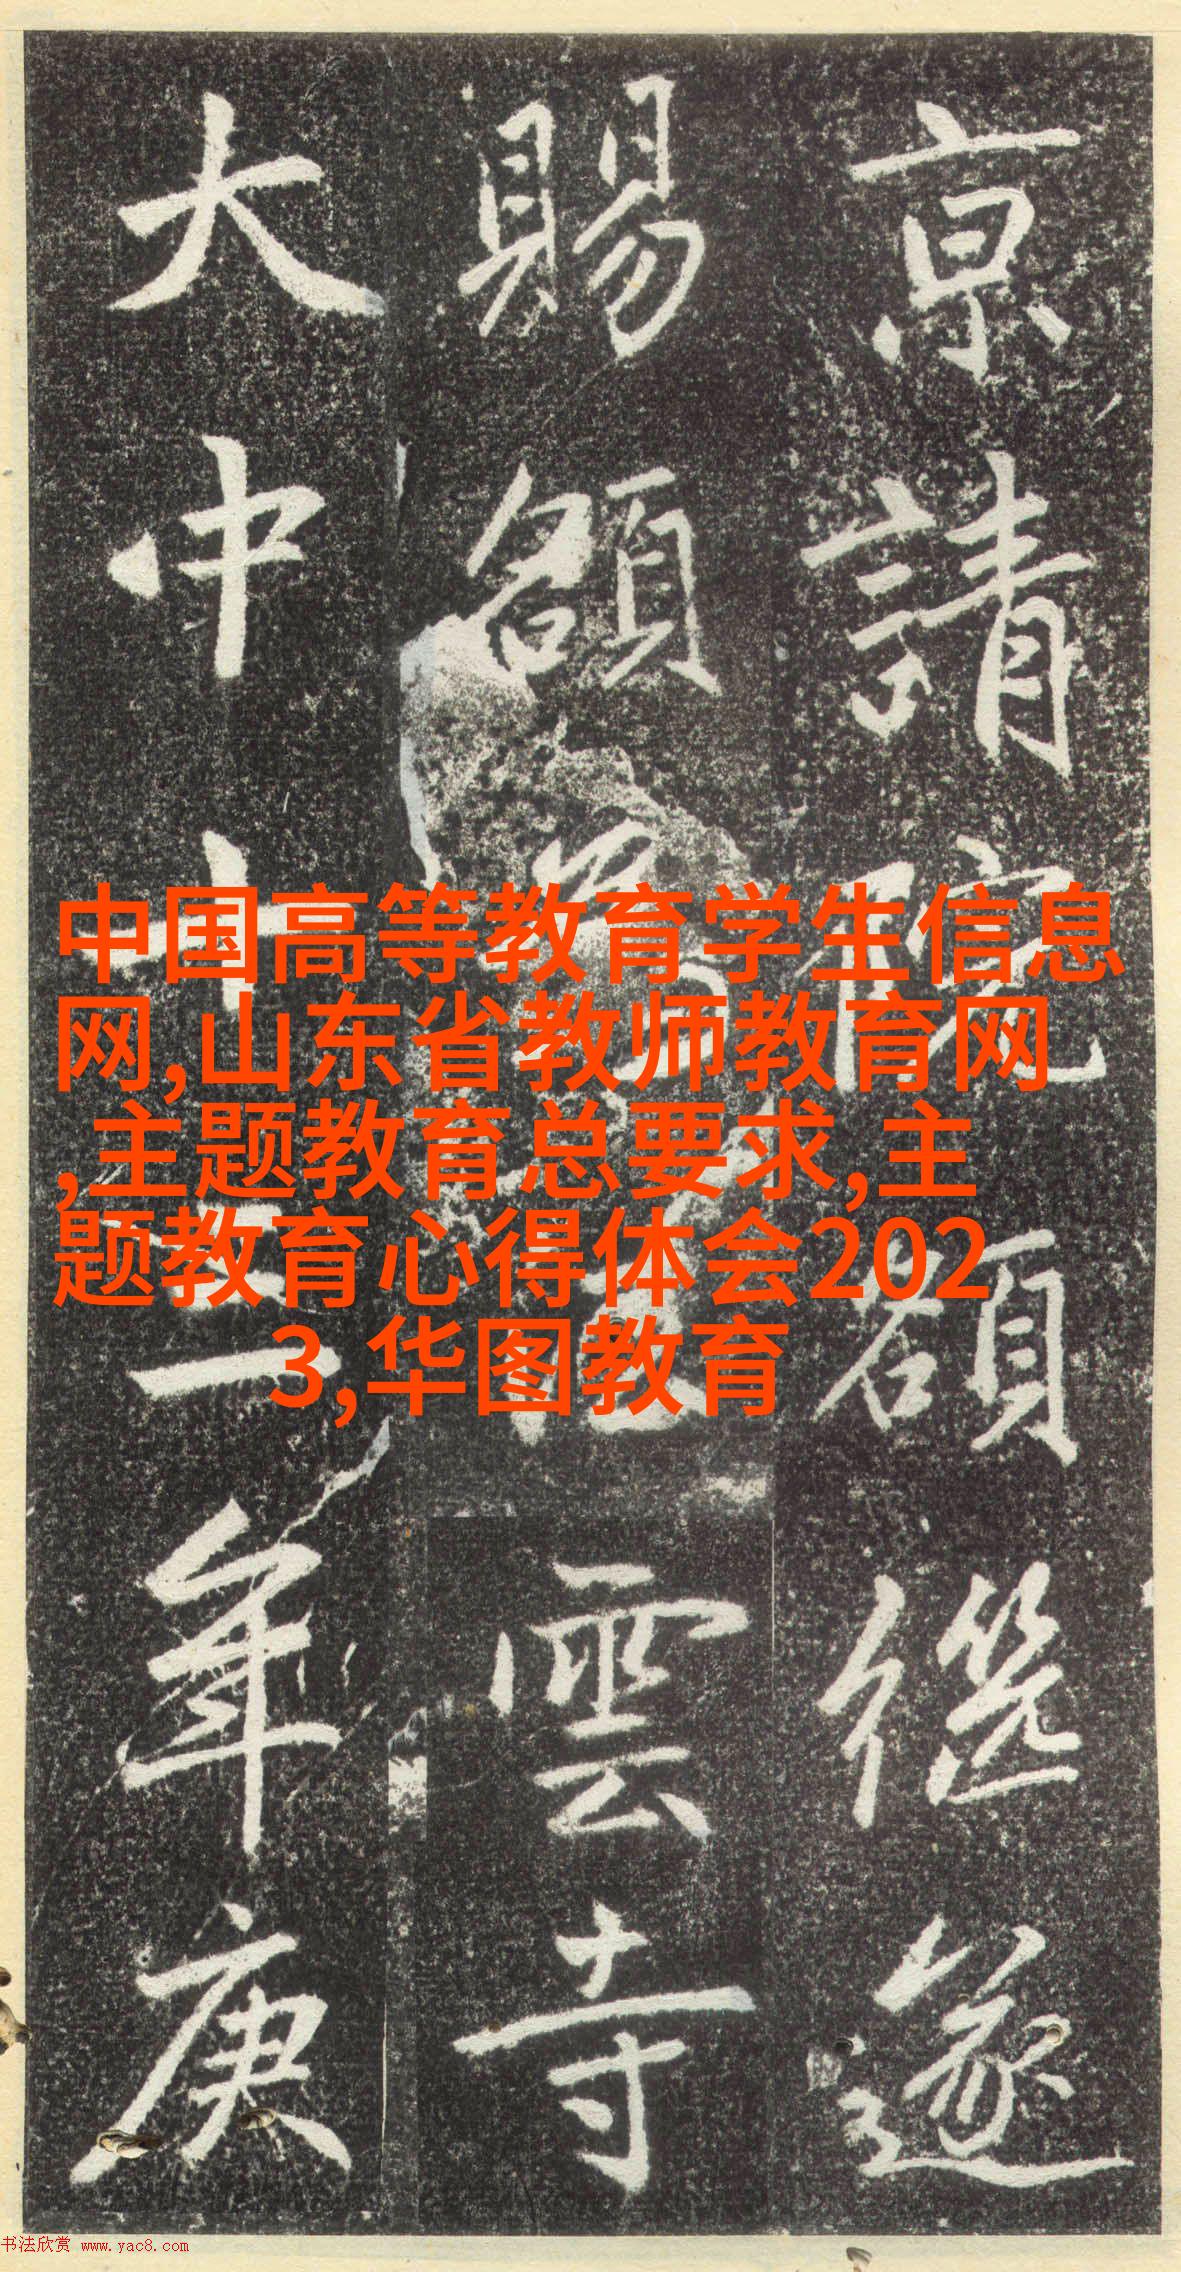 京請院額遂
賜額雲寺
大中十二年庚
中国高等教育学生信息
网,山东省教师教育网
,主题教育总要求,主
题教育心得体会202
3,华图教育
书法欣赏 www.yac8.com